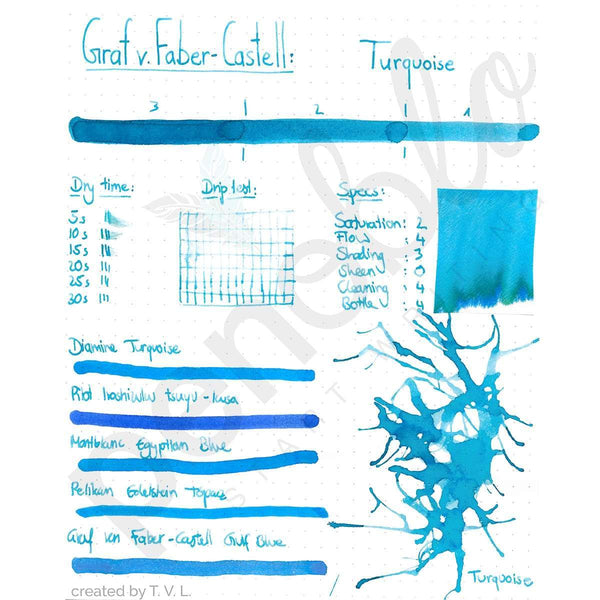 Graf v. Faber-Castell: Turquoise
3 | 2 | 1
Dry time: Drip test: Specs:
5s
10s
15s
20s
25s
30s
Saturation: 2
Flow : 4
Shading : 3
Sheen : 0
Cleaning : 4
Bottle : 4
Diamine Turquoise
tsuyu-kusa
Montblanc Egyptian Blue
Pelikan Edelstein Topas
Graf von Faber-Castell Gulf Blue
Turquoise
created by T. V. L.